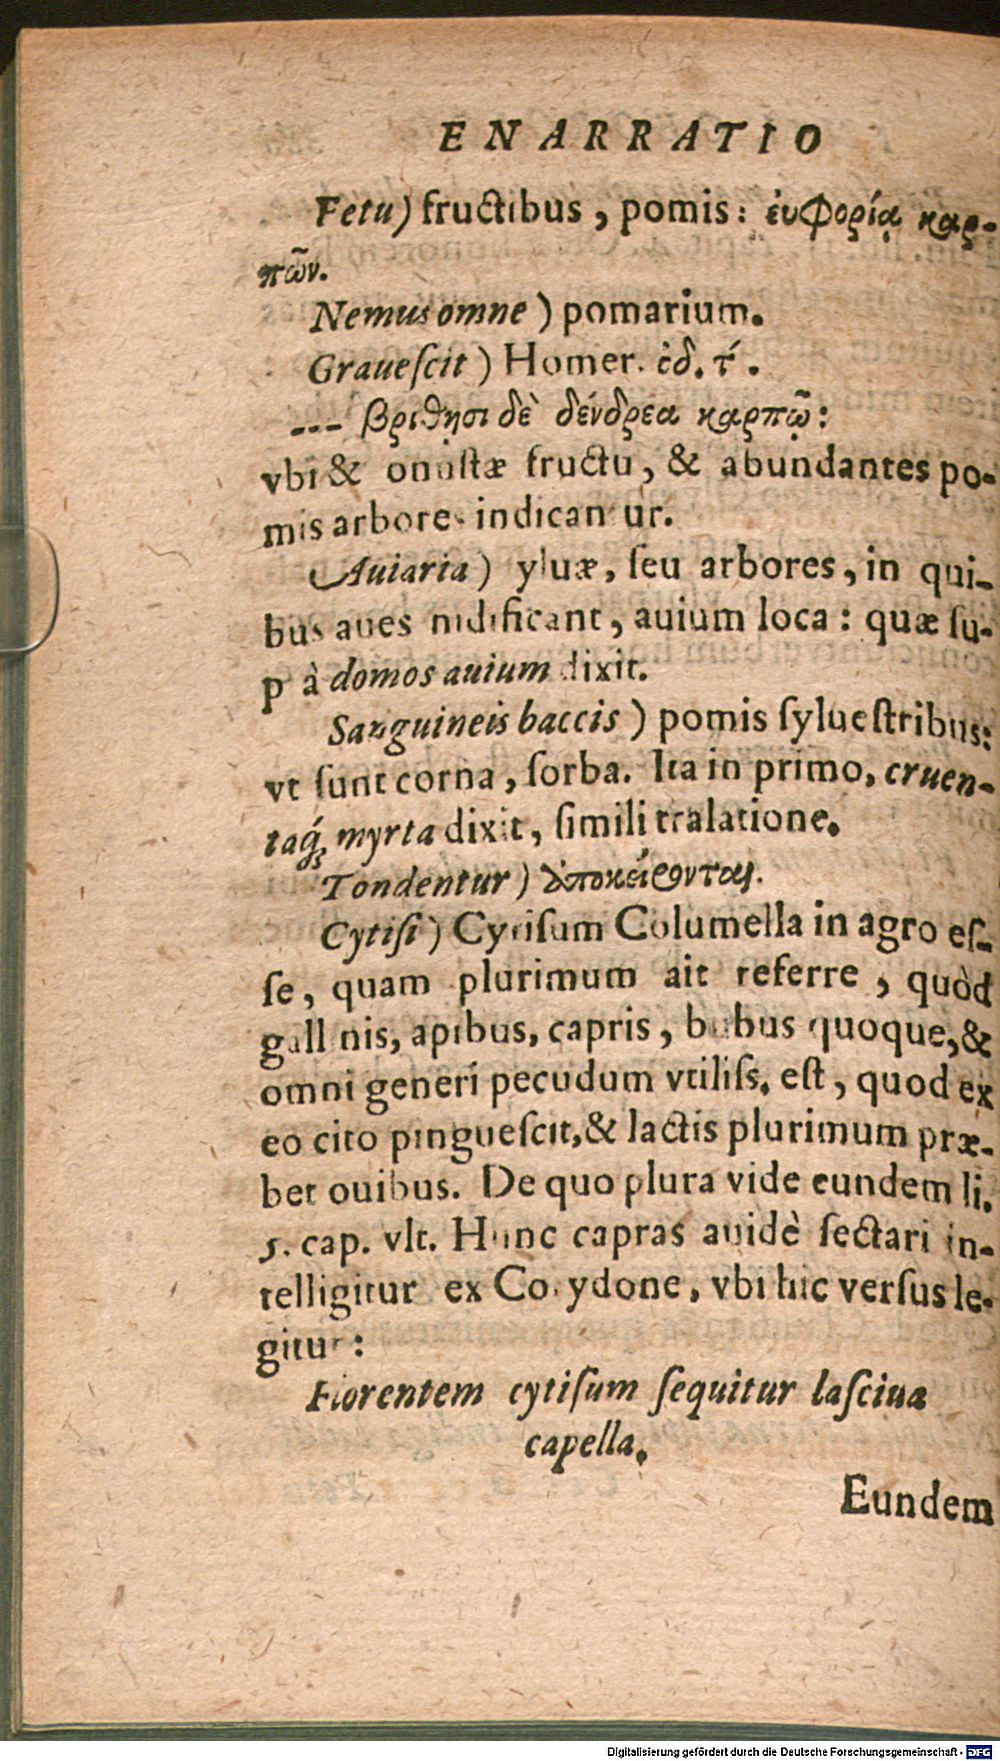 ENARRATIO
Fetu) fructibus, pomis: ἐυφορίᾳ καρ-
πῶν.
Nemus omne) pomarium.
Grauescit) Homer. ὀδ. τ́.
--- βρίθησι δὲ δένδρεα καρπῷ:
vbi & onustæ fructu, & abundantes po-
mis arbores indicantur.
Auiaria) syluæ, seu arbores, in qui-
bus aues nidificant, auium loca: quæ su-
prà domos auium dixit.
Sanguineis baccis) pomis syluestribus:
vt sunt corna, sorba. Ita in primo, cruen-
taq́; myrta dixit, simili tralatione.
Tondentur) ἀποκείρονται.
Cytisi) Cytisum Columella in agro es-
se, quam plurimum ait referre, quòd
gallinis, apibus, capris, bobus quoque, &
omni generi pecudum vtiliss. est, quod ex
eo cito pinguescit, & lactis plurimum præ-
bet ouibus. De quo plura vide eundem li.
5. cap. vlt. Hunc capras auidè sectari in-
telligitur ex Corydone, vbi hic versus le-
gitur:
Florentem cytisum sequitur lasciua
capella.
Eundem
Digitalisierung gefördert durch die Deutsche Forschungsgemeinschaft - DFG